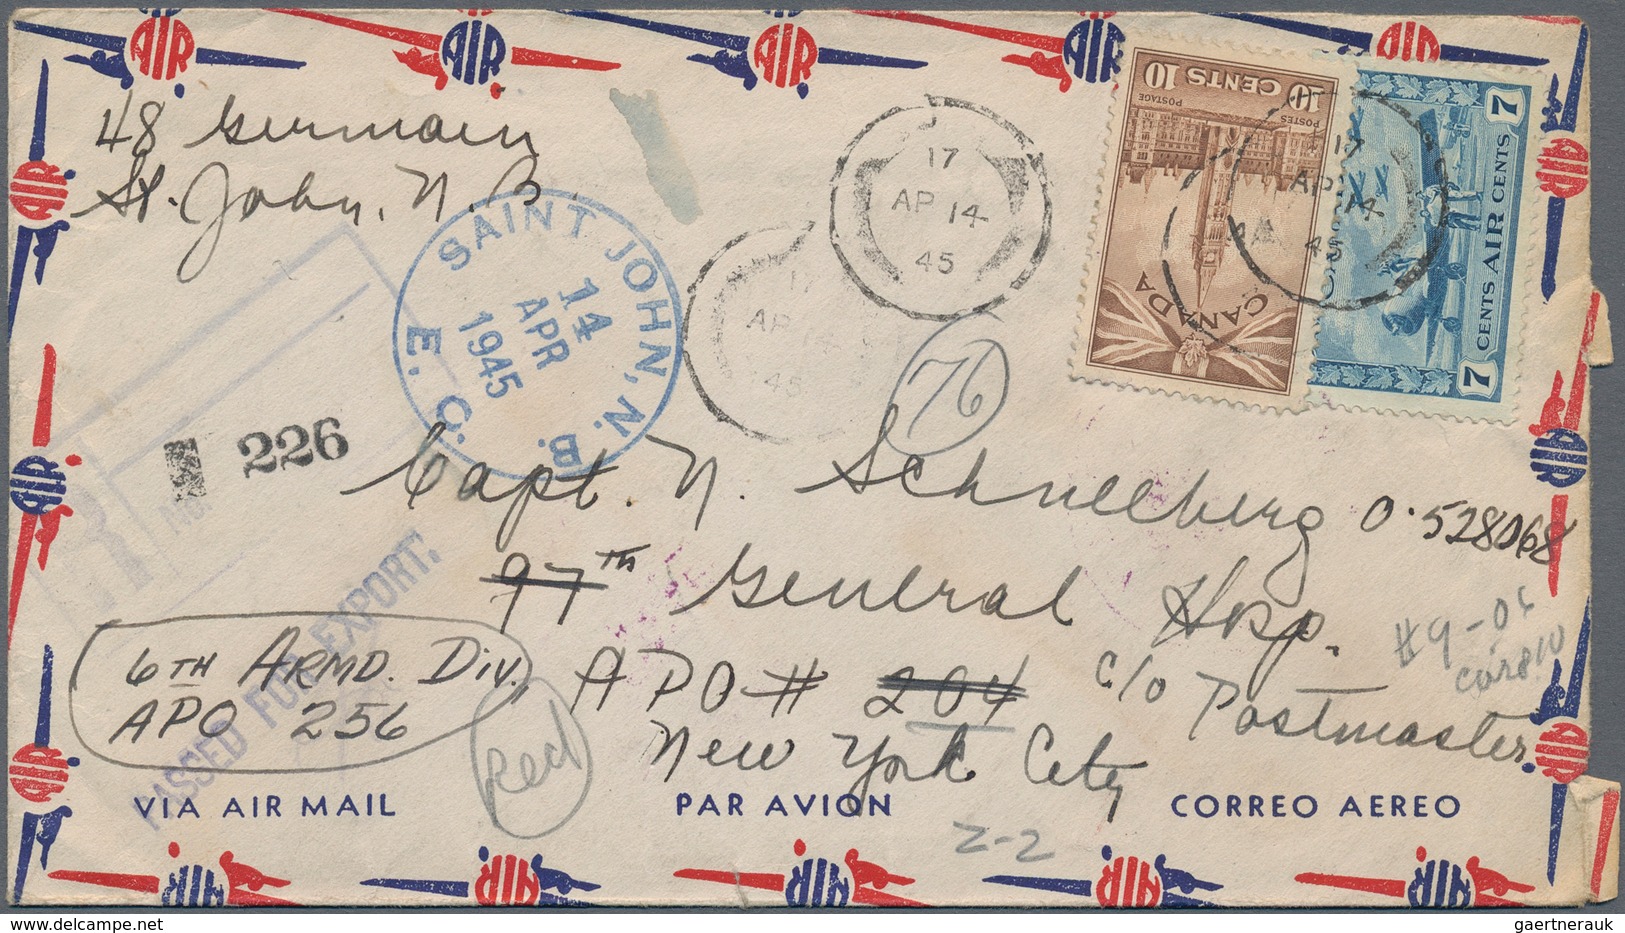 AIR AIR AIR AIR AIR
48 Germain
St. John, N.B.
SAINT JOHN, N. B.
14
APR
1945
E. C.
17
AP 14
45
17
AP 14
45
17
AP 14
45
POSTES POSTAGE
10 CENTS 10
CANADA
7 CENTS AIR CENTS 7
R
No.
226
76
Capt. N. Schneeberg 0.528068
97th General Hosp.
APO # 204 c/o Postmaster
New York City
6TH ARMD. DIV.
APO 256
PASSED FOR EXPORT.
Red
#9-05
Z-2
VIA AIR MAIL PAR AVION CORREO AEREO
AIR AIR AIR AIR AIR
gaertnerauk